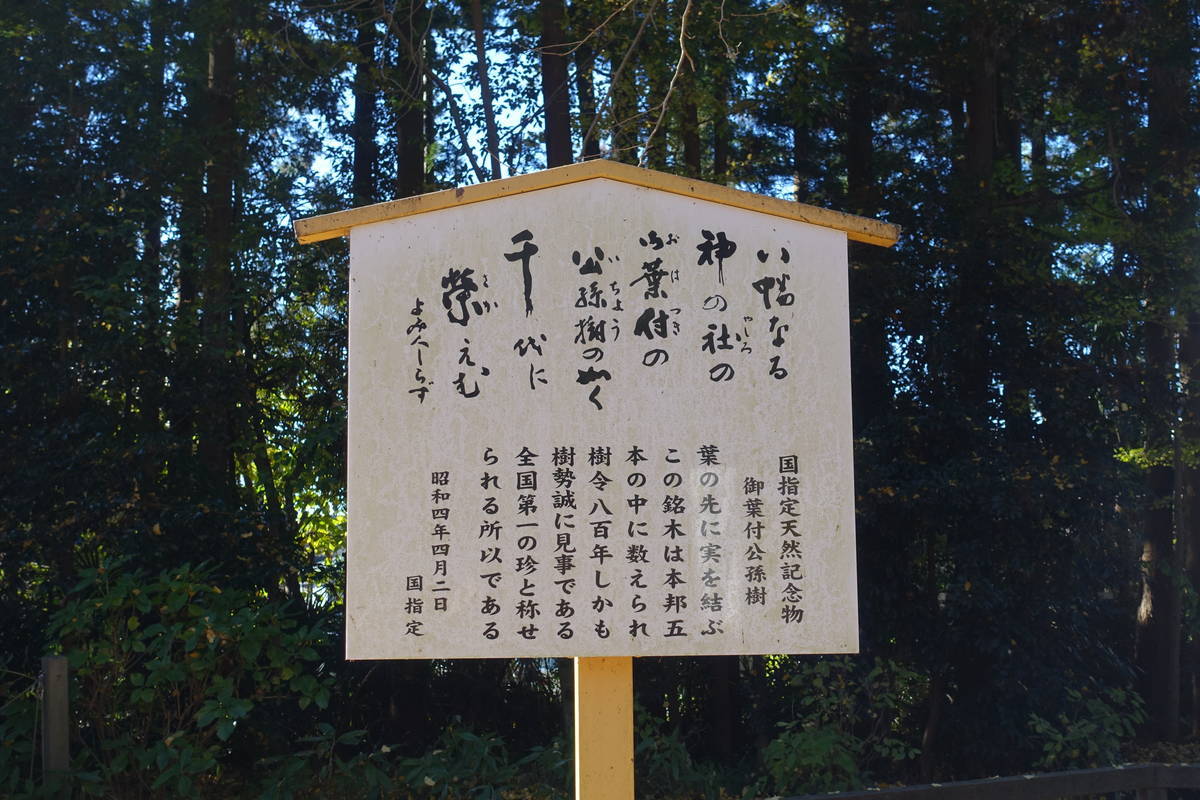 八幡なる
神の社の
やしろ
御葉付の
おはつき
公孫樹の如く
いちょう
千代に
榮えむ
さか
よみ人しらず
国指定天然記念物
御葉付公孫樹
葉の先に実を結ぶ
この銘木は本邦五
本の中に数えられ
樹令八百年しかも
樹勢誠に見事である
全国第一の珍と称せ
られる所以である
昭和四年四月二日
国指定